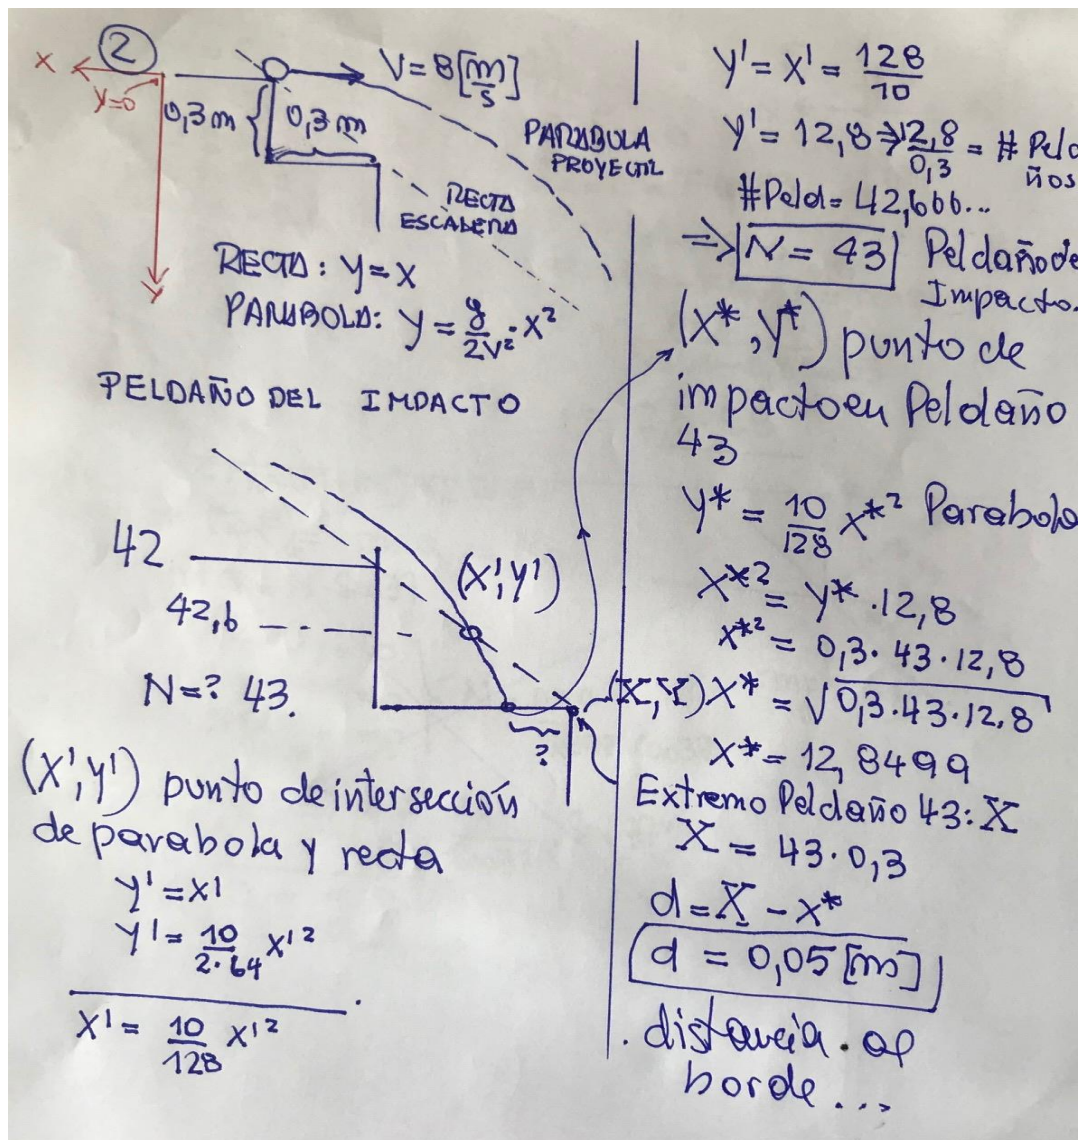 ②
X
Y=0
Y
V=8[m/s]
0,3m { 0,3m
PARABOLA
PROYECTIL
RECTA
ESCALERA
RECTA: Y=X
PARABOLA: Y = g/2V² · X²
PELDAÑO DEL IMPACTO
42
42,6
N=? 43.
(X',Y')
(X,Y)
?
(X',Y') punto de intersección
de parabola y recta
Y'=X'
Y' = 10/2·64 X'²
X' = 10/128 X'²
Y'=X'= 128/10
Y' = 12,8 ⇒ 12,8/0,3 = # Pelda
ños
#Peld= 42,666...
⇒ N = 43 Peldaño de
Impacto.
(X*,Y*) punto de
impacto en Peldaño
43
Y* = 10/128 X*² Parabola
X*² = Y* · 12,8
X*² = 0,3 · 43 · 12,8
X* = √0,3·43·12,8
X* = 12,8499
Extremo Peldaño 43: X
X = 43·0,3
d = X - X*
d = 0,05 [m]
. distancia · al
borde ...